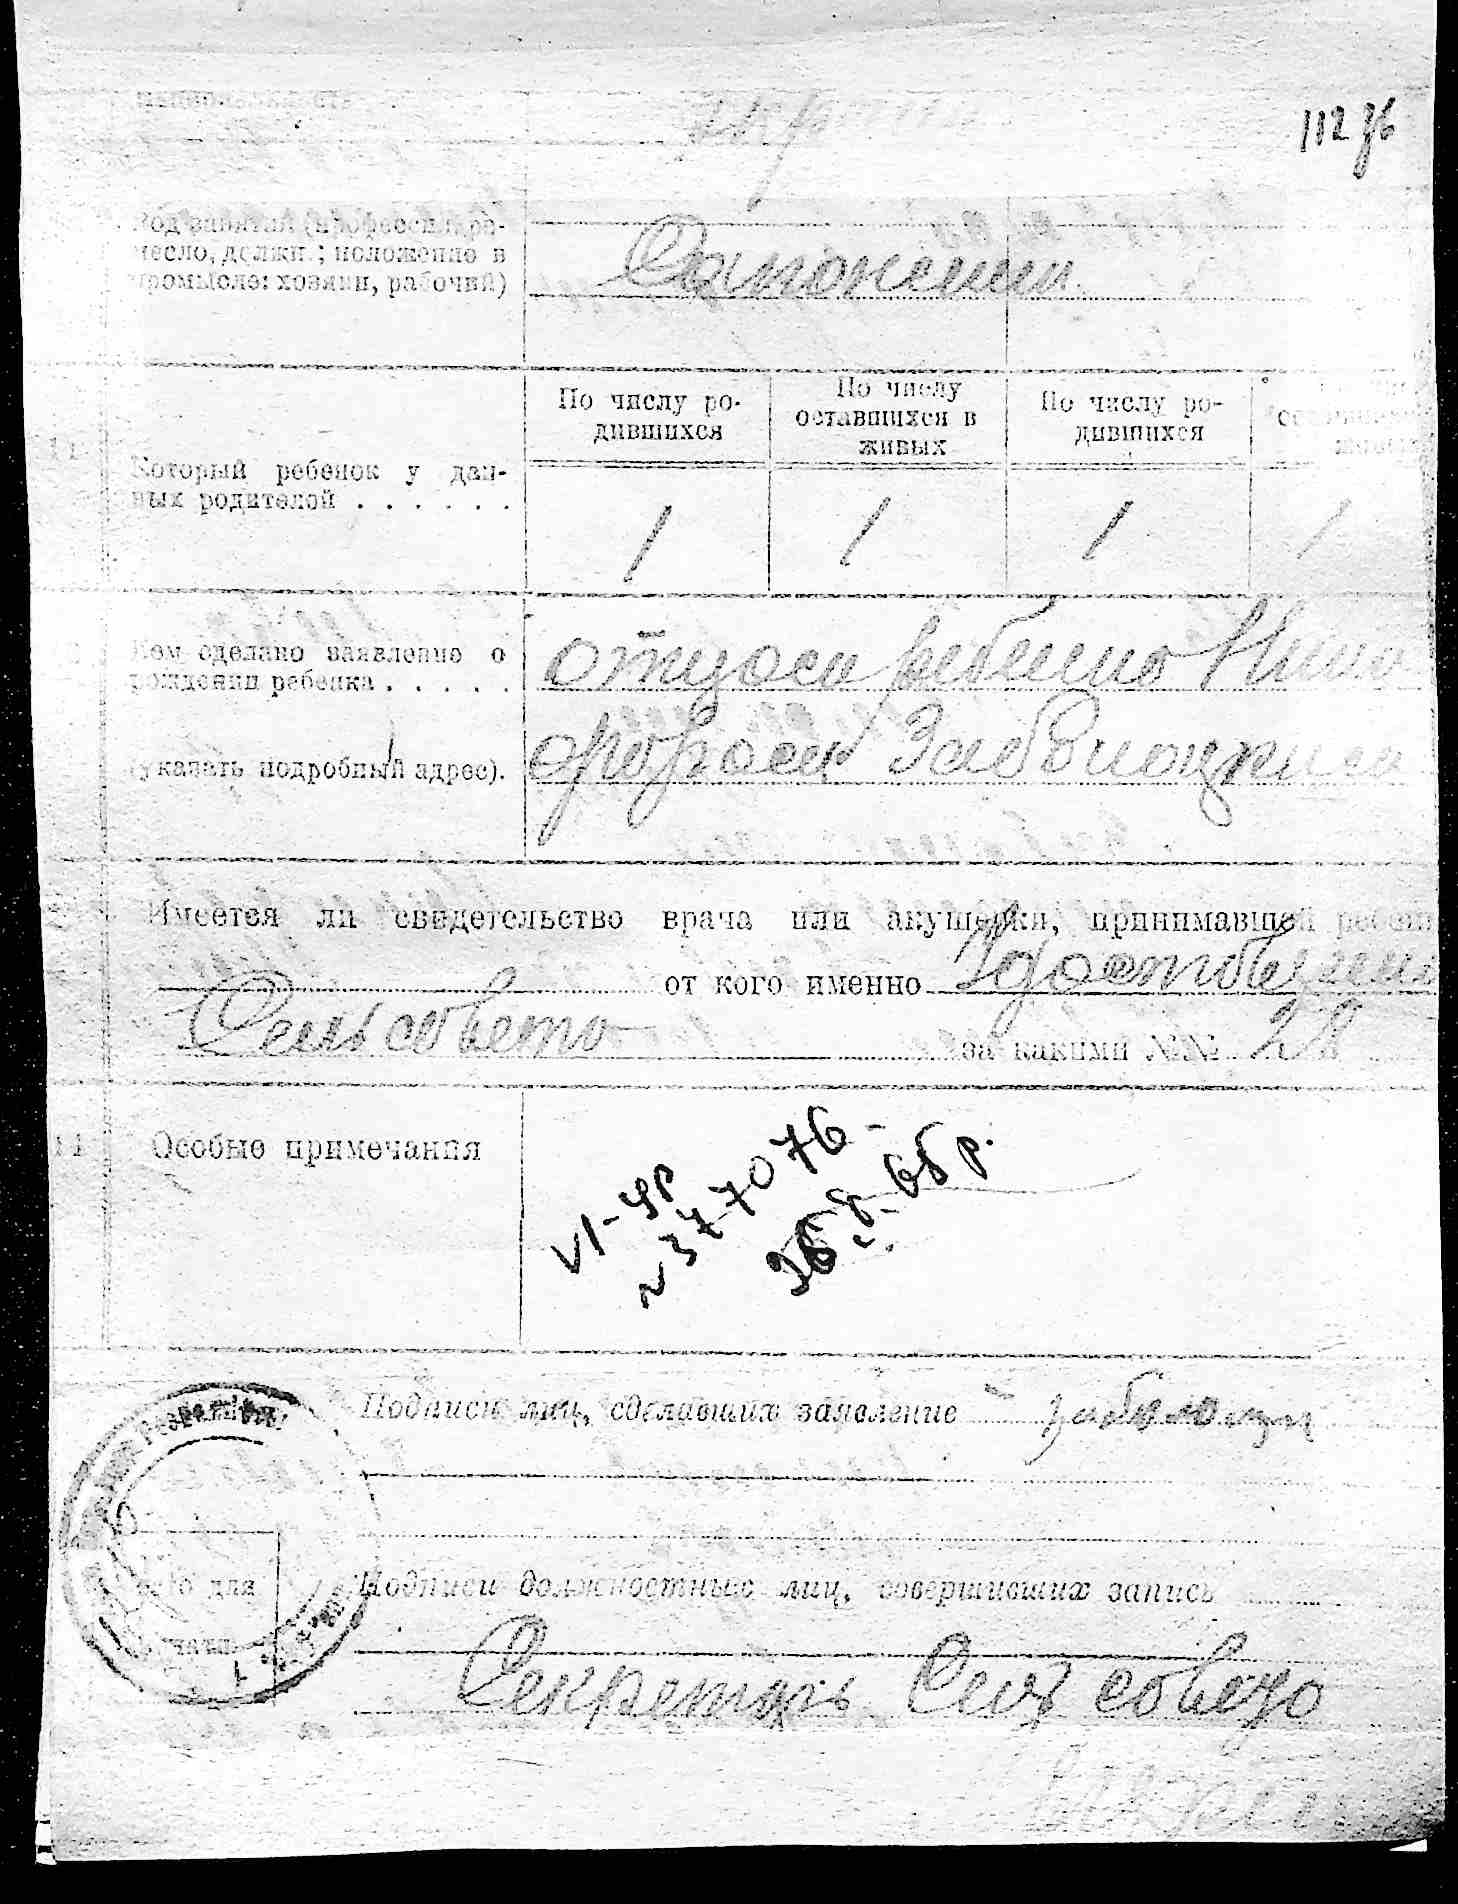 Национальность
112 об
Род занятий (профессия, ре-
месло, должн.; положение в
промысле: хозяин, рабочий)
По числу ро-
дившихся
По числу
оставшихся в
живых
По числу ро-
дившихся
11
Который ребенок у дан-
ных родителей . . . . . .
1 1 1 1
Кем сделано заявление о
рождении ребенка . . . . .
отцом ребенка Ники
(указать подробный адрес).
фором Заболоцким
Имеется ли свидетельство врача или акушерки, принимавшей
от кого именно
Сельсовета за какими №№ 28
14 Особые примечания
VI-УР
N 377076-
68 р.
Подписи лиц, сделавших заявление Заболоцки
Подписи должностных лиц, совершивших запись
Секретарь Сельсовета